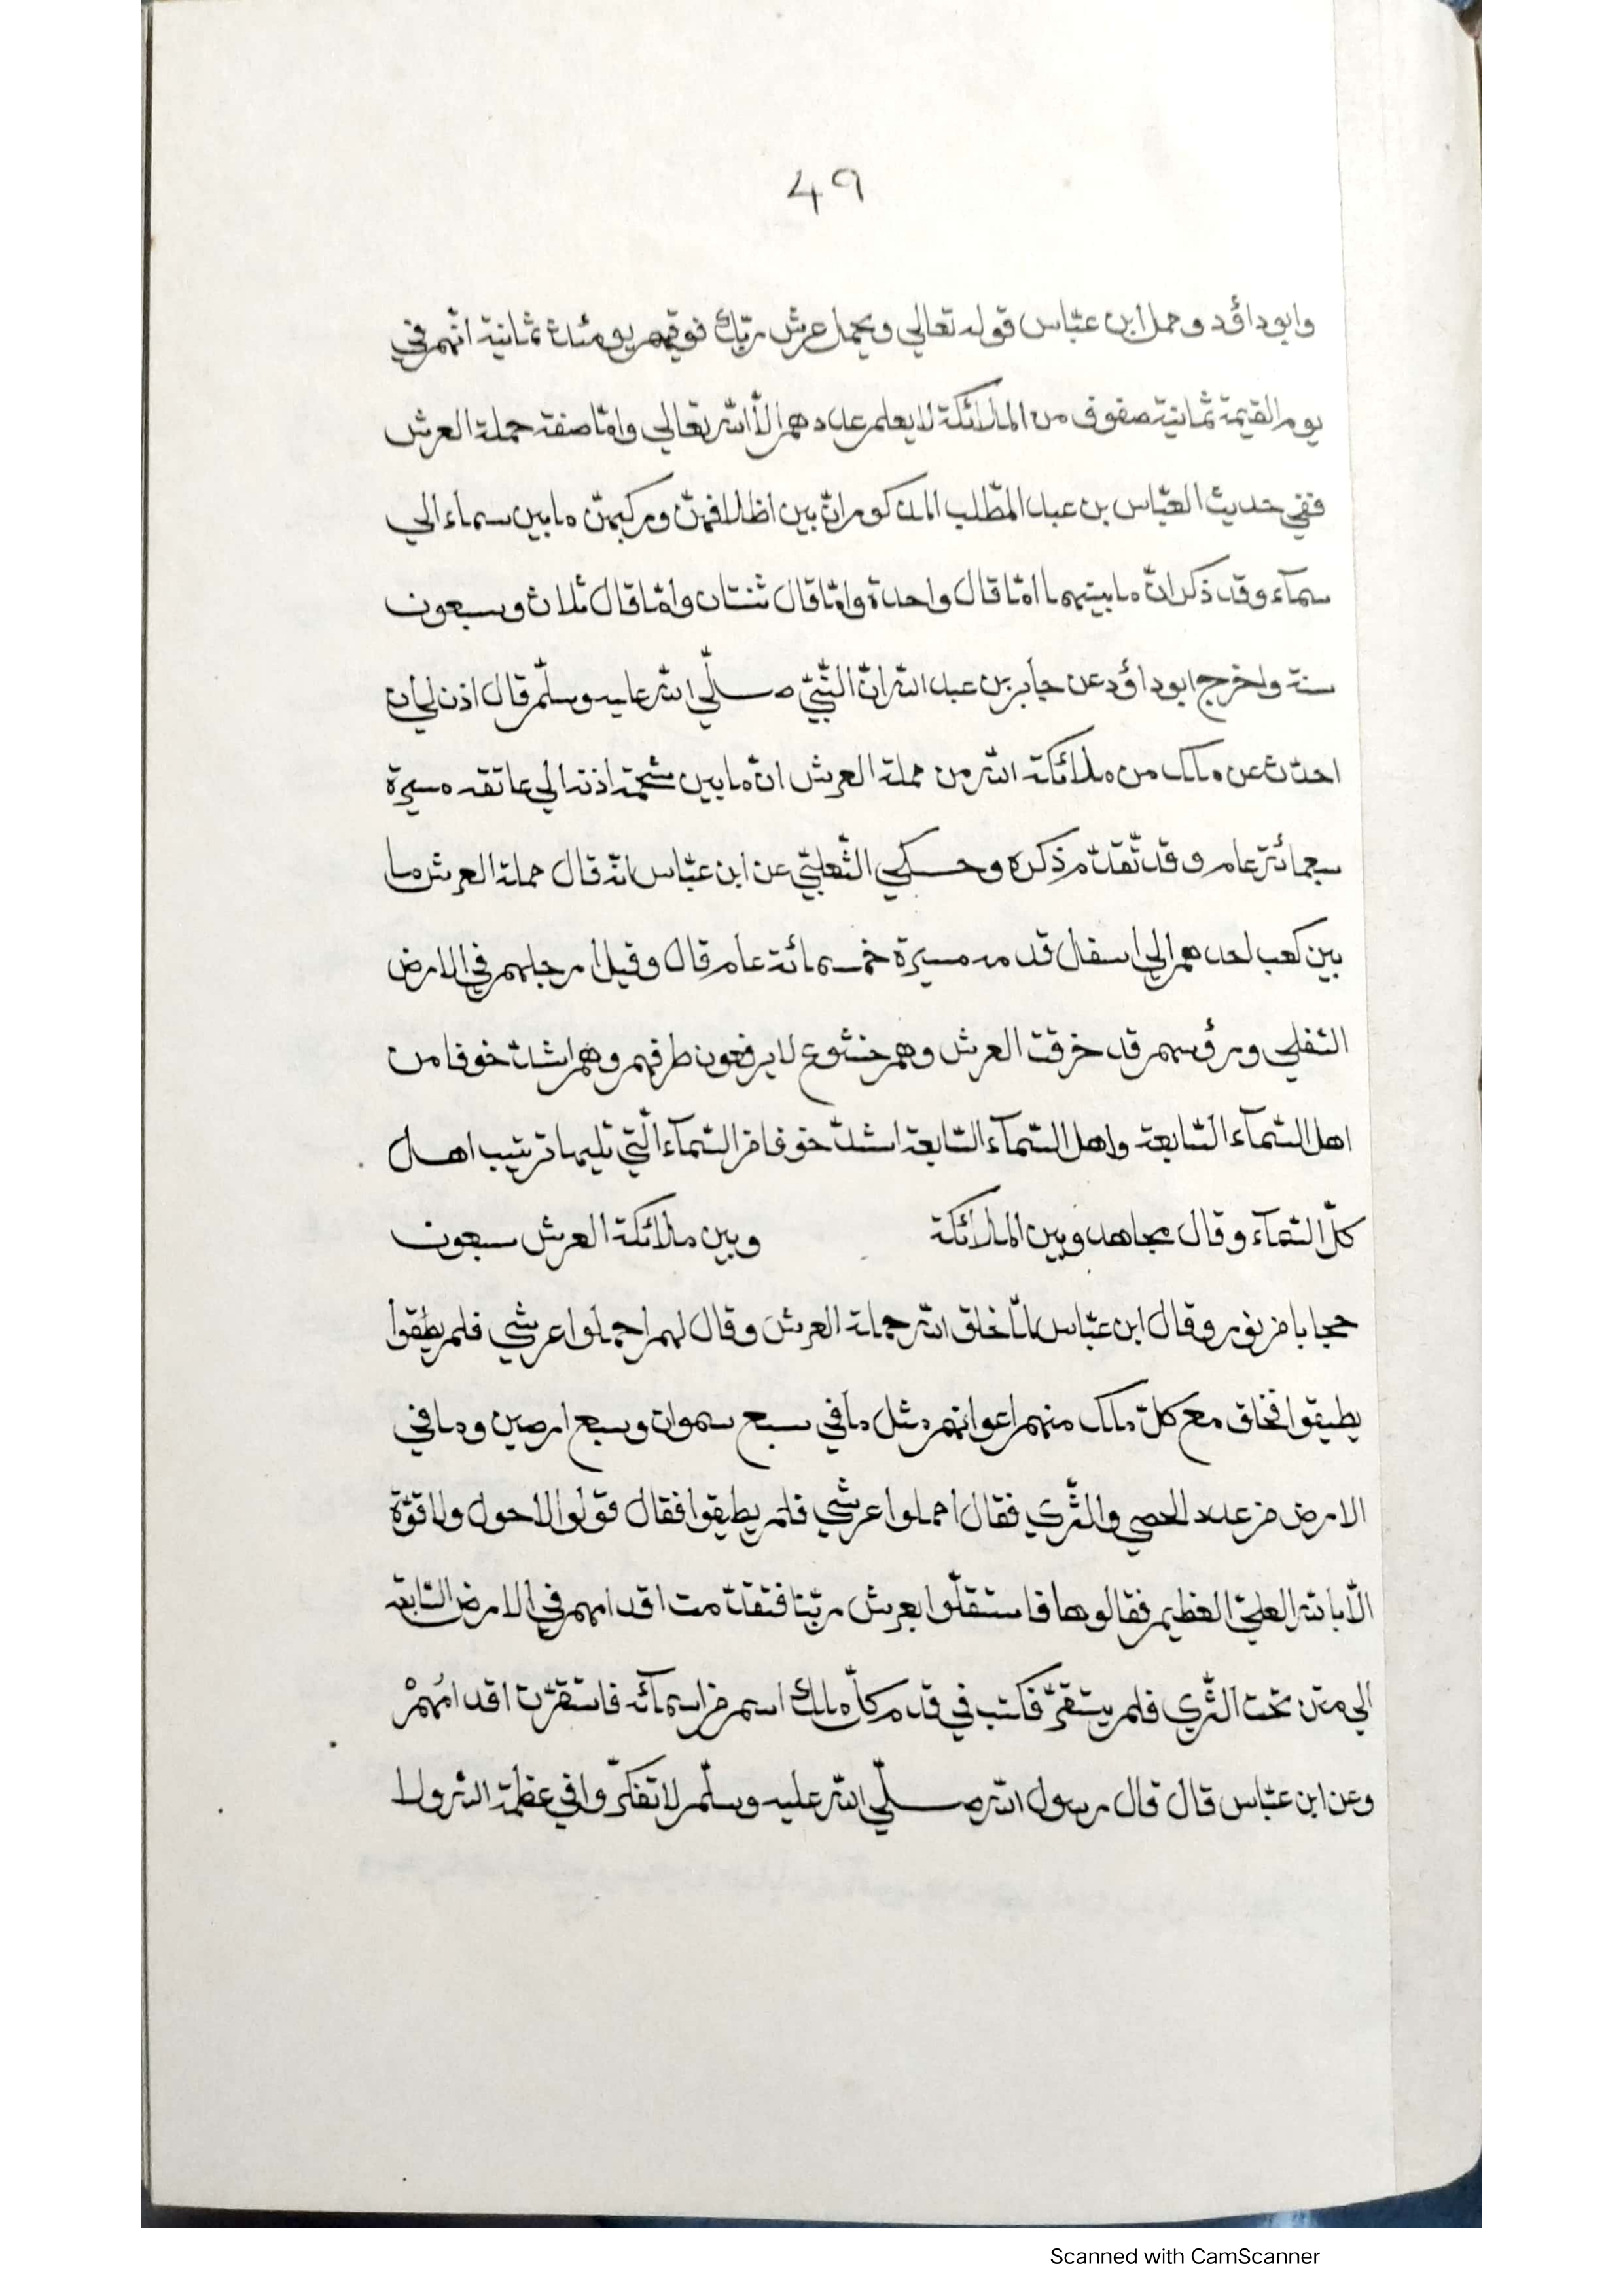 ٤٩
وابوداؤد وحمل ابن عبّاس قوله تعالي ويحمل عرش ربّك فوقهم يومئذ ثمانية انّهم في
يوم القيمة ثمانية صفوف من الملائكة لا يعلم عددهم الّا الله تعالي وامّا صفة حملة العرش
ففي حديث العبّاس بن عبد المطّلب المذكور انّ بين اظلافهنّ وركبهنّ ما بين سماء الي
سمآء وقد ذكر انّ ما بينهما امّا قال واحدة وامّا قال ثنتان وامّا قال ثلاث وسبعون
سنة واخرج ابوداؤد عن جابر بن عبد الله انّ النّبيّ صلّي الله عليه وسلّم قال اذن لي ان
احدّث عن ملك من ملائكة الله من حملة العرش انّ ما بين شحمة اذنه الي عاتقه مسيرة
سبعمائة عام وقد تقدّم ذكره وحكي الثّعلبيّ عن ابن عبّاس انّه قال حملة العرش ما
بين كعب احدهم الي اسفال قدمه مسيرة خمسمائة عام قال وقيل ارجلهم في الارض
السّفلي ورؤسهم قد خرقت العرش وهم خشوع لا يرفعون طرفهم وهم اشدّ خوفا من
اهل السّمآء السّابعة واهل السّمآء السّابعة اشدّ خوفا من السّمآء الّتي تليها ترتيب اهل
كلّ السّمآء وقال مجاهد وبين الملائكة وبين ملائكة العرش سبعون
حجابا من نور وقال ابن عبّاس لمّا خلق الله حملة العرش وقال لهم احملوا عرشي فلم يطقوا
يطيقوا فخلق مع كلّ ملك منهم اعوانهم مثل ما في سبع سموات وسبع ارضين وما في
الارض من عدد الحصي والثّري فقال احملوا عرشي فلم يطيقوا فقال قولوا لا حول ولا قوّة
الّا بالله العليّ العظيم فقالوها فاستقلّوا بعرش ربّنا فتقدّمت اقدامهم في الارض السّابعة
الي متن تحت الثّري فلم يستقرّ فكتب في قدم كلّ ملك اسم من اسمآئه فاستقرّت اقدامُهمْ
وعن ابن عبّاس قال قال رسول الله صلّي الله عليه وسلّم لا تفكّروا في عظمة الله ولا
Scanned with CamScanner